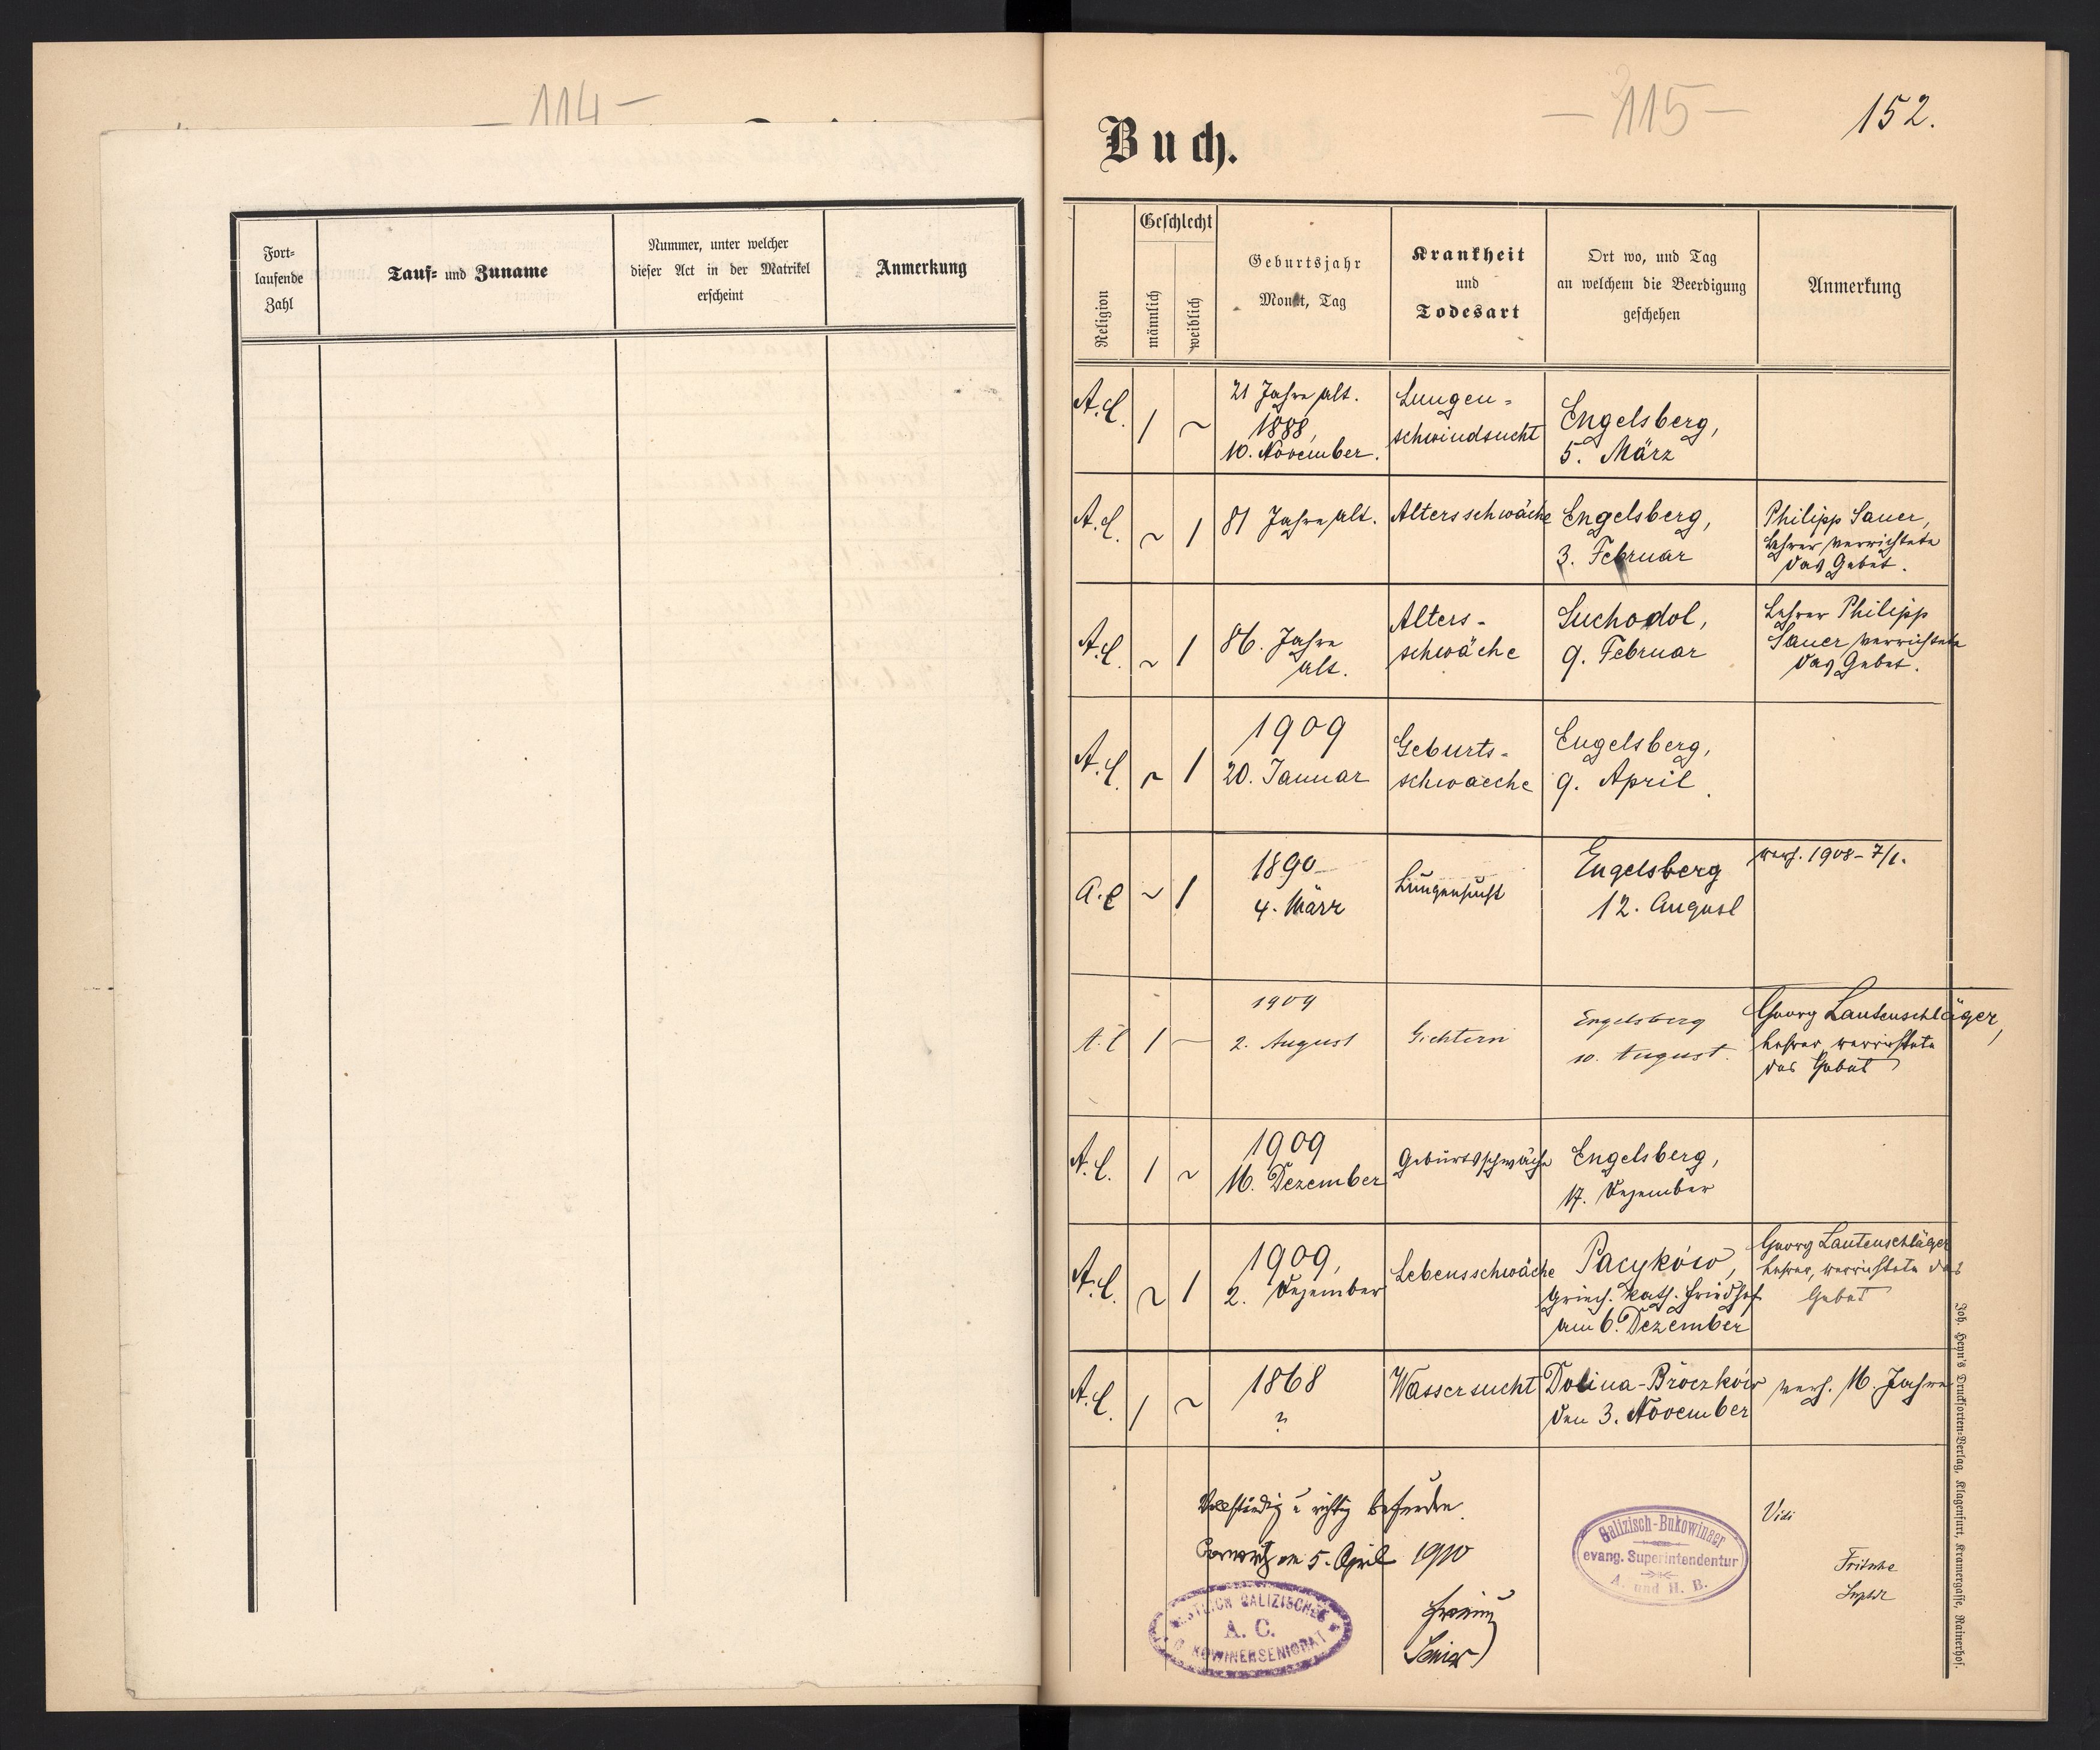 — 114 —
Fort-
laufende
Zahl
Tauf= und Zuname
Nummer, unter welcher
dieser Act in der Matrikel
erscheint
Anmerkung
— 115 —
152.
Buch.
Religion
Geschlecht
männlich
weiblich
Geburtsjahr
Monat, Tag
Krankheit
und
Todesart
Ort wo, und Tag
an welchem die Beerdigung
geschehen
Anmerkung
A.C. 1 ~
21 Jahre alt.
1888,
10. November.
Lungen=
schwindsucht
Engelsberg,
5. März
A.C. ~ 1
81 Jahre alt.
Altersschwäche
Engelsberg,
3. Februar
Philipp Sauer,
Lehrer verrichtete
das Gebet.
A.C. ~ 1
86. Jahre
alt.
Alters-
schwäche
Suchodol,
9. Februar
Lehrer Philipp
Sauer verrichtete
das Gebet.
A.C. ~ 1
1909
20. Januar
Geburts-
schwaeche
Engelsberg,
9. April.
A.C ~ 1
1890
4. März
Lungensucht
Engelsberg
12. August
verh. 1908 - 7/1.
A.C 1 —
1909
2. August
Gichtern
Engelsberg
10. August.
Georg Lautenschläger,
Lehrer, verrichtete
das Gebet
A.C. 1 ~
1909
16. Dezember
Geburtsschwäche
Engelsberg,
17. Dezember
A.C. ~ 1
1909,
2. Dezember
Lebensschwäche
Pacyków,
Griech. kath. Friedhof
am 6. Dezember
Georg Lautenschläger
Lehrer, verrichtete das
Gebet
A.C. 1 ~
1868
?
Wassersucht
Dolina-Broczków
den 3. November
verh. 16. Jahre
Vollständig u richtig befunden.
am 5. April 1910
Senior
ESTLICH GALIZISCHES
A. C.
KOWINERSENIORAT
Galizisch-Bukowinaer
evang. Superintendentur
A. und H. B.
Vidi
Fritsche
Suptdt
Joh. Heyn's Drucksorten-Verlag, Klagenfurt, Kramergasse, Rainerhof.